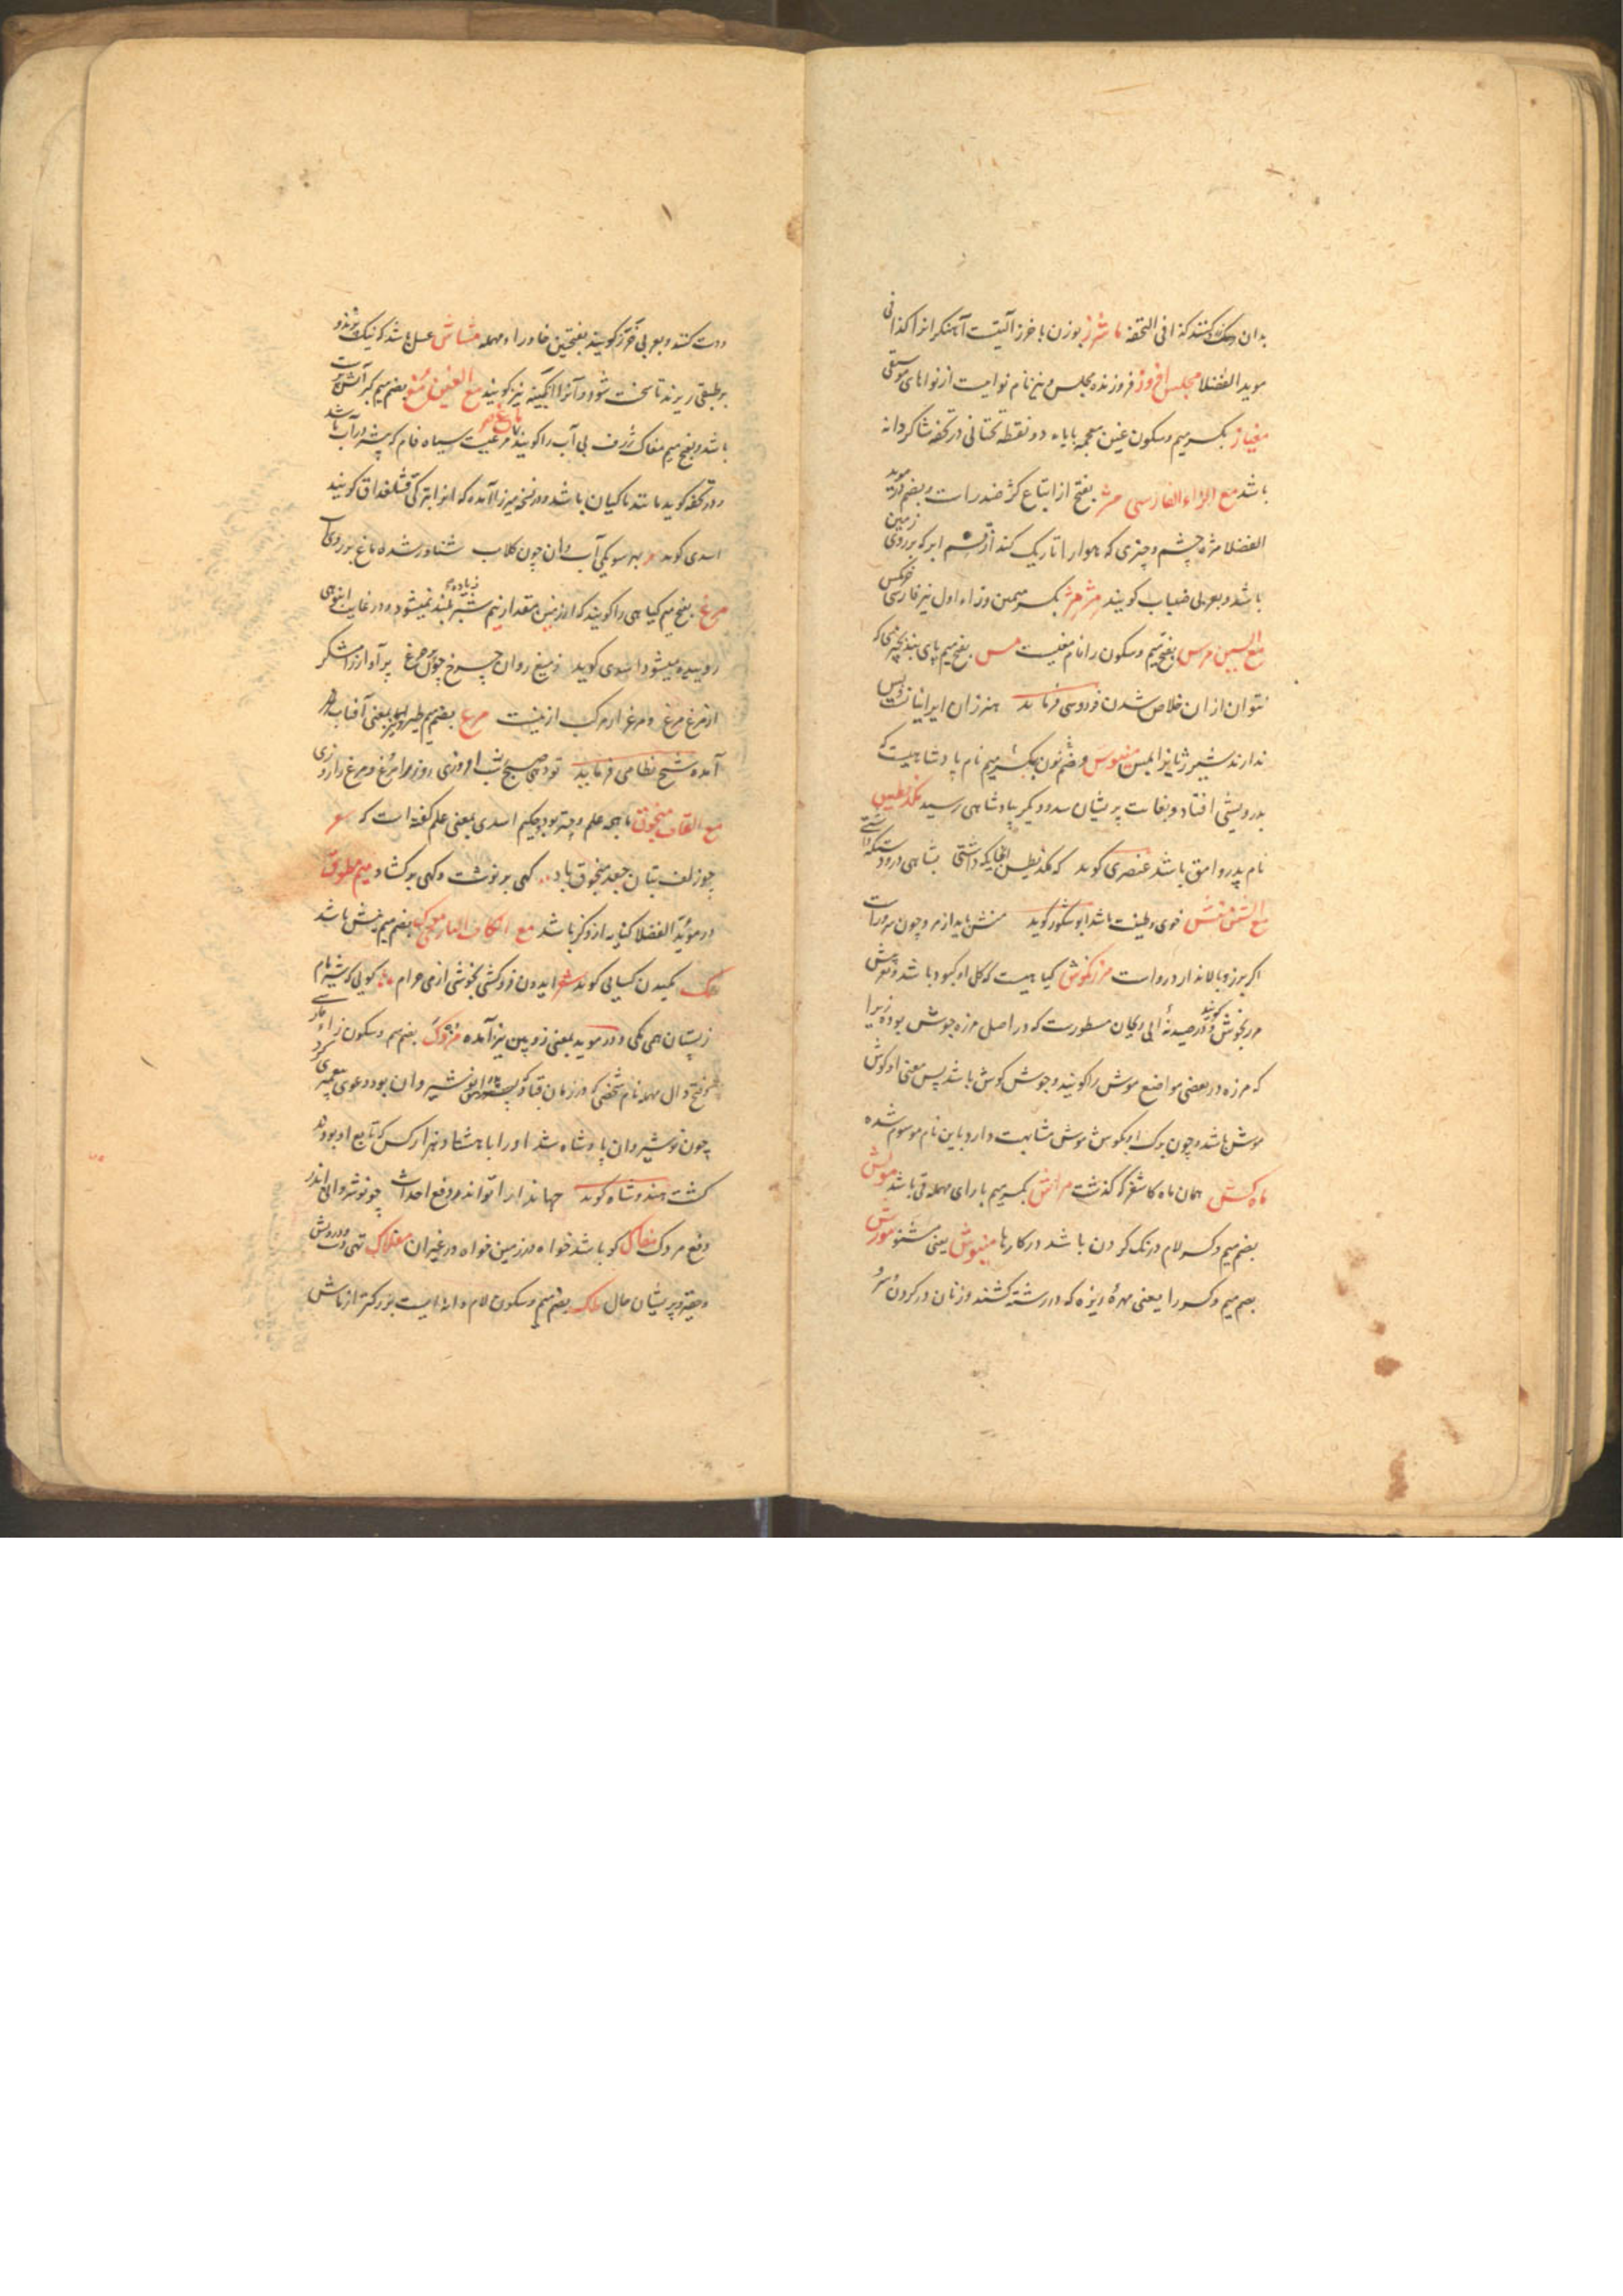 بدان رنگ کنند کذا فی التحفه ماشرز بوزن باخرز آلتیست آهنگرانرا کذا فی
موید الفضلا مجلس افروز فروزنده مجلس و نیز نام نواییست از نواهای موسیقی
مغیاز بکسر میم و سکون غین معجمه بایاء دو نقطه تحتانی در تحفه شاکردانه
باشد مع الزاء الفارسی مژ بفتح از اتباع کژ ضد راست و بضم در موید
الفضلا مژه چشم و چیزی که هوا را تاریک کند از قسم ابر که بر روی زمین
باشد و بعربی ضباب کویند مژمژ بکسر میمین و زاء اول نیز فارسی خرمکس
مع السین مرس بفتح میم و سکون را نام مغیست مس بفتح میم پای بند بچیزی که
نتوان از ان خلاص شدن فردوسی فرماید هنر زان ایرانیانست و بس
ندارند شیر ژیانرا بمس منوس و ضم نون بکسر میم نام پادشاهیست که
بدرویشی افتاد و بغایت پریشان شد و دیکر بپادشاهی رسید مکذیطیس
نام پدر وامق باشد عنصری کوید که مکذیطس آنجایکه داشتی بشاهی درو دستکه داشتی
مع الشین منش خوی و طبیعت باشد ابو شکور کوید منش باید از مرد چون سرو راست
اکر برز و بالا ندارد رواست مرزنکوش کیاهیست که کل او کبود باشد و معربش
مرزنجوش کویند و در صیدنهٔ ابی ریحان مسطورست که در اصل مرزه جوش بوده زیرا
که مرزه در بعضی مواضع موش را کویند و جوش کوش باشد پس معنی او کوش
موش باشد و چون برک او بکوش موش مشابهت دارد باین نام موسوم شده
ماه کش همان ماه کاشغر که کذشت مراش بکسر میم بارای مهمله قی باشد مولش
بضم میم و کسر لام درنک کردن باشد در کارها منیوش یعنی مشنو مورش
بضم میم و کسر را یعنی مهرهٔ ریزه که در رشته کشند و زنان در کردن و سر و
دست کنند و بعربی خرز کویند بفتحتین خا و را و مهمله مشاش عسل باشد که نیک بپزند و
بر طبقی ریزند تا سخت شود و آنرا آبکینه نیز کویند مع الغین مغ بضم میم کبر آتش پرست
باشد و بفتح میم مغاک ژرف بی آب را کویند ماغ مرغیست سیاه فام که بیشتر در آب باشد
و در تحفه کوید مانند ماکیان باشد و در نسخه میرزا آمده که انرا بترکی قشقلداق کویند
اسدی کوید بهر سو یکی آبدان چون کلاب شناور شده ماغ بر روی آب
مرغ بفتح میم کیاهی را کویند که از زمین مقدار نیم شبر زیاده بلند نمیشود و در غایت انبوهی
روییده میشود اسدی کوید ز میغ روان چرخ چون پر چرغ پر آواز رامشکر
از مرغ مرغ و مرغ ارمرک ازینست مرغ بضم میم طیر و نیز بمعنی آفتاب هم
آمده شیخ نظامی فرماید تو دهی صبح را شب افروزی روز را مرغ و مرغ را روزی
مع القاف منجوق ماهچه علم و چتر بود و حکیم اسدی بمعنی علم کفته است که شعر
چو زلف بتان جعد منجوق باد کهی بر نوشت و کهی بر کشاد میم مطوق
در مؤید الفضلا کنایه از ذکر باشد مع الکاف التازی مک بضم میم زوبین باشد
مک مکیدن کسایی کوید شعر ایدون فروکشی بخوشی از می حرام کویی که شیر مام
ز پستان همی مکی و در موید بمعنی زوبین نیز آمده مزدک بضم میم و سکون زاء فارسی
و فتح دال مهمله نام شخصی که در زمان قباد که پدر نوشیروان بود دعوی پیغمبری کرد
چون نوشیروان پادشاه شد او را با هشتاد هزار کس که تابع او بودند
کشت هندوشاه کوید جهاندارا تو اندر دفع احداث چو نوشروانی اندر
دفع مزدک مغاک کو باشد خواه در زمین خواه در غیر ان مفلاک تهی دست و درویش
و حقیر و پریشان حال ملک بضم میم و سکون لام دانه ایست بزرکتر از ماش